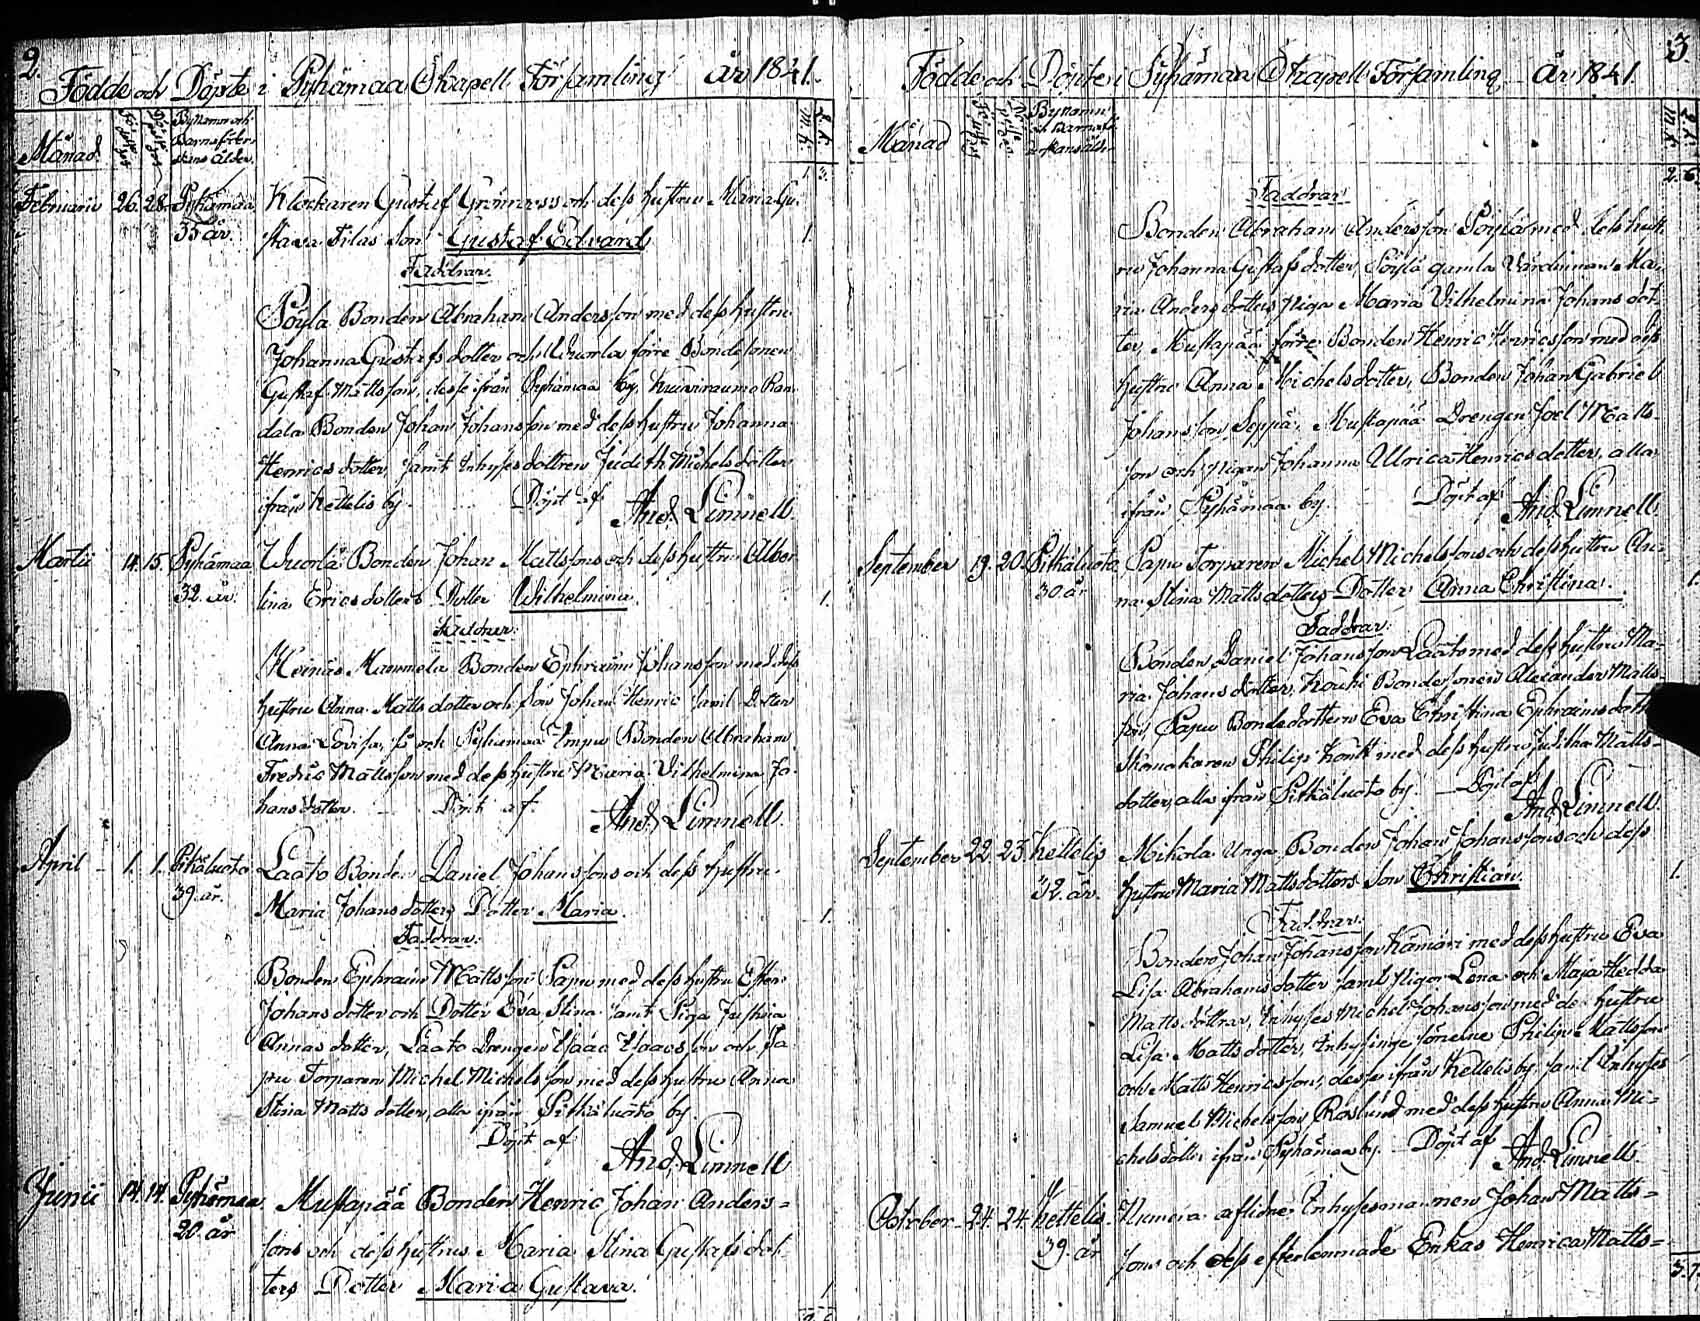 2.
Födde och Döpte i Pyhämaa Capell Församling år 1841.
Månad. Bynamn och
Barnaföder-
skans Ålder. m.k. q.k.
1. 3.
Februarii 26. 28. Pyhämaa Klockaren Gustaf Grönroos och dess hustru Maria Gu-
35 år. stava Filas Son Gustaf Edvard 1.
Faddrar.
Söyla Bonden Abraham Andersson med dess hustru
Johanna Gustafsdotter och Wuorla förre Bondesonen
Gustaf Mattsson, desse ifrån Pyhämaa by, Kuivirauma Ran-
dala Bonden Johan Johansson med dess hustru Johanna
Henricsdotter, samt Inhyses dottren Judith Michelsdotter
ifrån Kettelis by. Döpt af And. Limnell.
Martii 14. 15. Pyhämaa Wuorla Bonden Johan Mattssons och dess hustru Alber-
32. år. tina Ericsdotters Dotter Wilhelmina. 1.
Faddrar.
Heinäs Mammela Bonden Ephraim Johansson med dess
hustru Anna Mattsdotter och Son Johan Henric samt Dotter
Anna Lovisa, och Pyhämaa Impu Bonden Abraham
Fredric Mattsson med dess hustru Maria Vilhelmina Jo-
hansdotter. Döpt af And. Limnell.
April 1. 1. Pitkäluoto Laato Bonden Daniel Johanssons och dess hustru
39. år. Maria Johansdotters Dotter Maria. 1.
Faddrar.
Bonden Ephraim Mattsson Papu med dess hustru Ester
Johansdotter och Dotter Eva Stina samt Piga Justina
Annasdotter, Laato Drengen Isaac Isaacsson och Pa-
pu Torparen Michel Michelsson med dess hustru Anna
Stina Mattsdotter, alla ifrån Pitkäluoto by.
Döpt af
And. Limnell
Junii 14. 14. Pyhämaa Mustapää Bonden Henric Johan Anders-
20. år sons och dess hustrus Maria Stina Gustafsdot-
ters Dotter Maria Gustava. 1
3.
Födde och Döpte i Pyhämaa Capell Församling År 1841.
Månad Bynamn
och Barnaför-
derskans ålder m.k. q.k.
2. 6.
Faddrar
Bonden Abraham Andersson Söylä med dess hust-
ru Johanna Gustafsdotter, Söylä gamla Värdinnan Ma-
ria Andersdotters piga Maria Vilhelmina Johansdot-
ter, Mustapää förre Bonden Henric Henricsson med dess
hustru Anna Michelsdotter, Bonden Johan Gabriel
Johansson Seppä, Mustapää Drengen Joel Matts-
son och pigan Johanna Ulrica Henricsdotter, alla
ifrån Pyhämaa by. Döpt af And. Limnell
September 19. 20. Pitkäluoto Papu Torparen Michel Michelssons och dess hustru An-
30. år na Stina Mattsdotters Dotter Anna Christina. 1.
Faddrar.
Bonden Daniel Johansson Laato med dess hustru Ma-
ria Johansdotter, Kouki Bondesonen Alexander Matts-
son, Papu Bondedottern Eva Christina Ephraimsdotter
Skomakaren Philip Kontt med dess hustru Juditha Matts-
dotter, alla ifrån Pitkäluoto by. Döpt af
And. Limnell.
September 22. 25. Kettelis Mikola Unga Bonden Johan Johanssons och dess
32. år. hustru Maria Mattsdotters Son Christian. 1.
Faddrar.
Bonden Johan Johansson Kamari med dess hustru Eva
Lisa Abrahamsdotter samt Pigor Lena och Maja Hedda
Mattsdöttrar, Inhyses Michel Johansson med dess hustru
Lisa Mattsdotter, Inhysinge sönerne Philip Mattsson
och Matts Henricsson, desse ifrån Kettelis by, samt Inhyses
Samuel Michelsson Roslund med dess hustru Anna Mi-
chelsdotter ifrån Pyhämaa by. Döpt af And. Limnell.
October 24. 24. Kettelis Numera aflidne Inhysesmannen Johan Matts-
39. år sons och dess efterlemnade Enkas Henrica Matts-
3. 7.